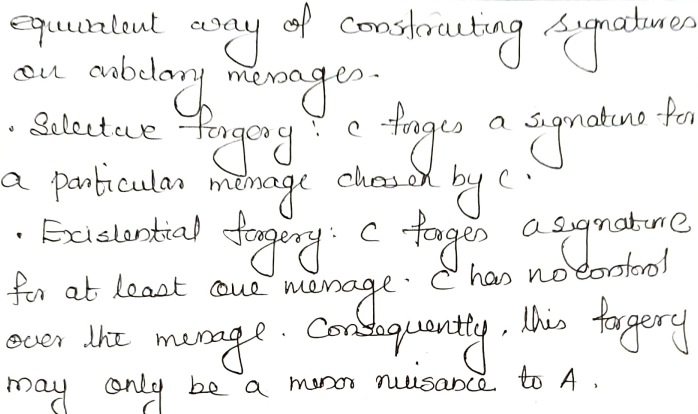 equivalent way of constructing signatures
on arbitary messages.
• Selective forgery: C forges a signature for
a particular message chosen by C.
• Existential forgery: C forges a signature
for at least one message. C has no control
over the message. Consequently, this forgery
may only be a minor nuisance to A.